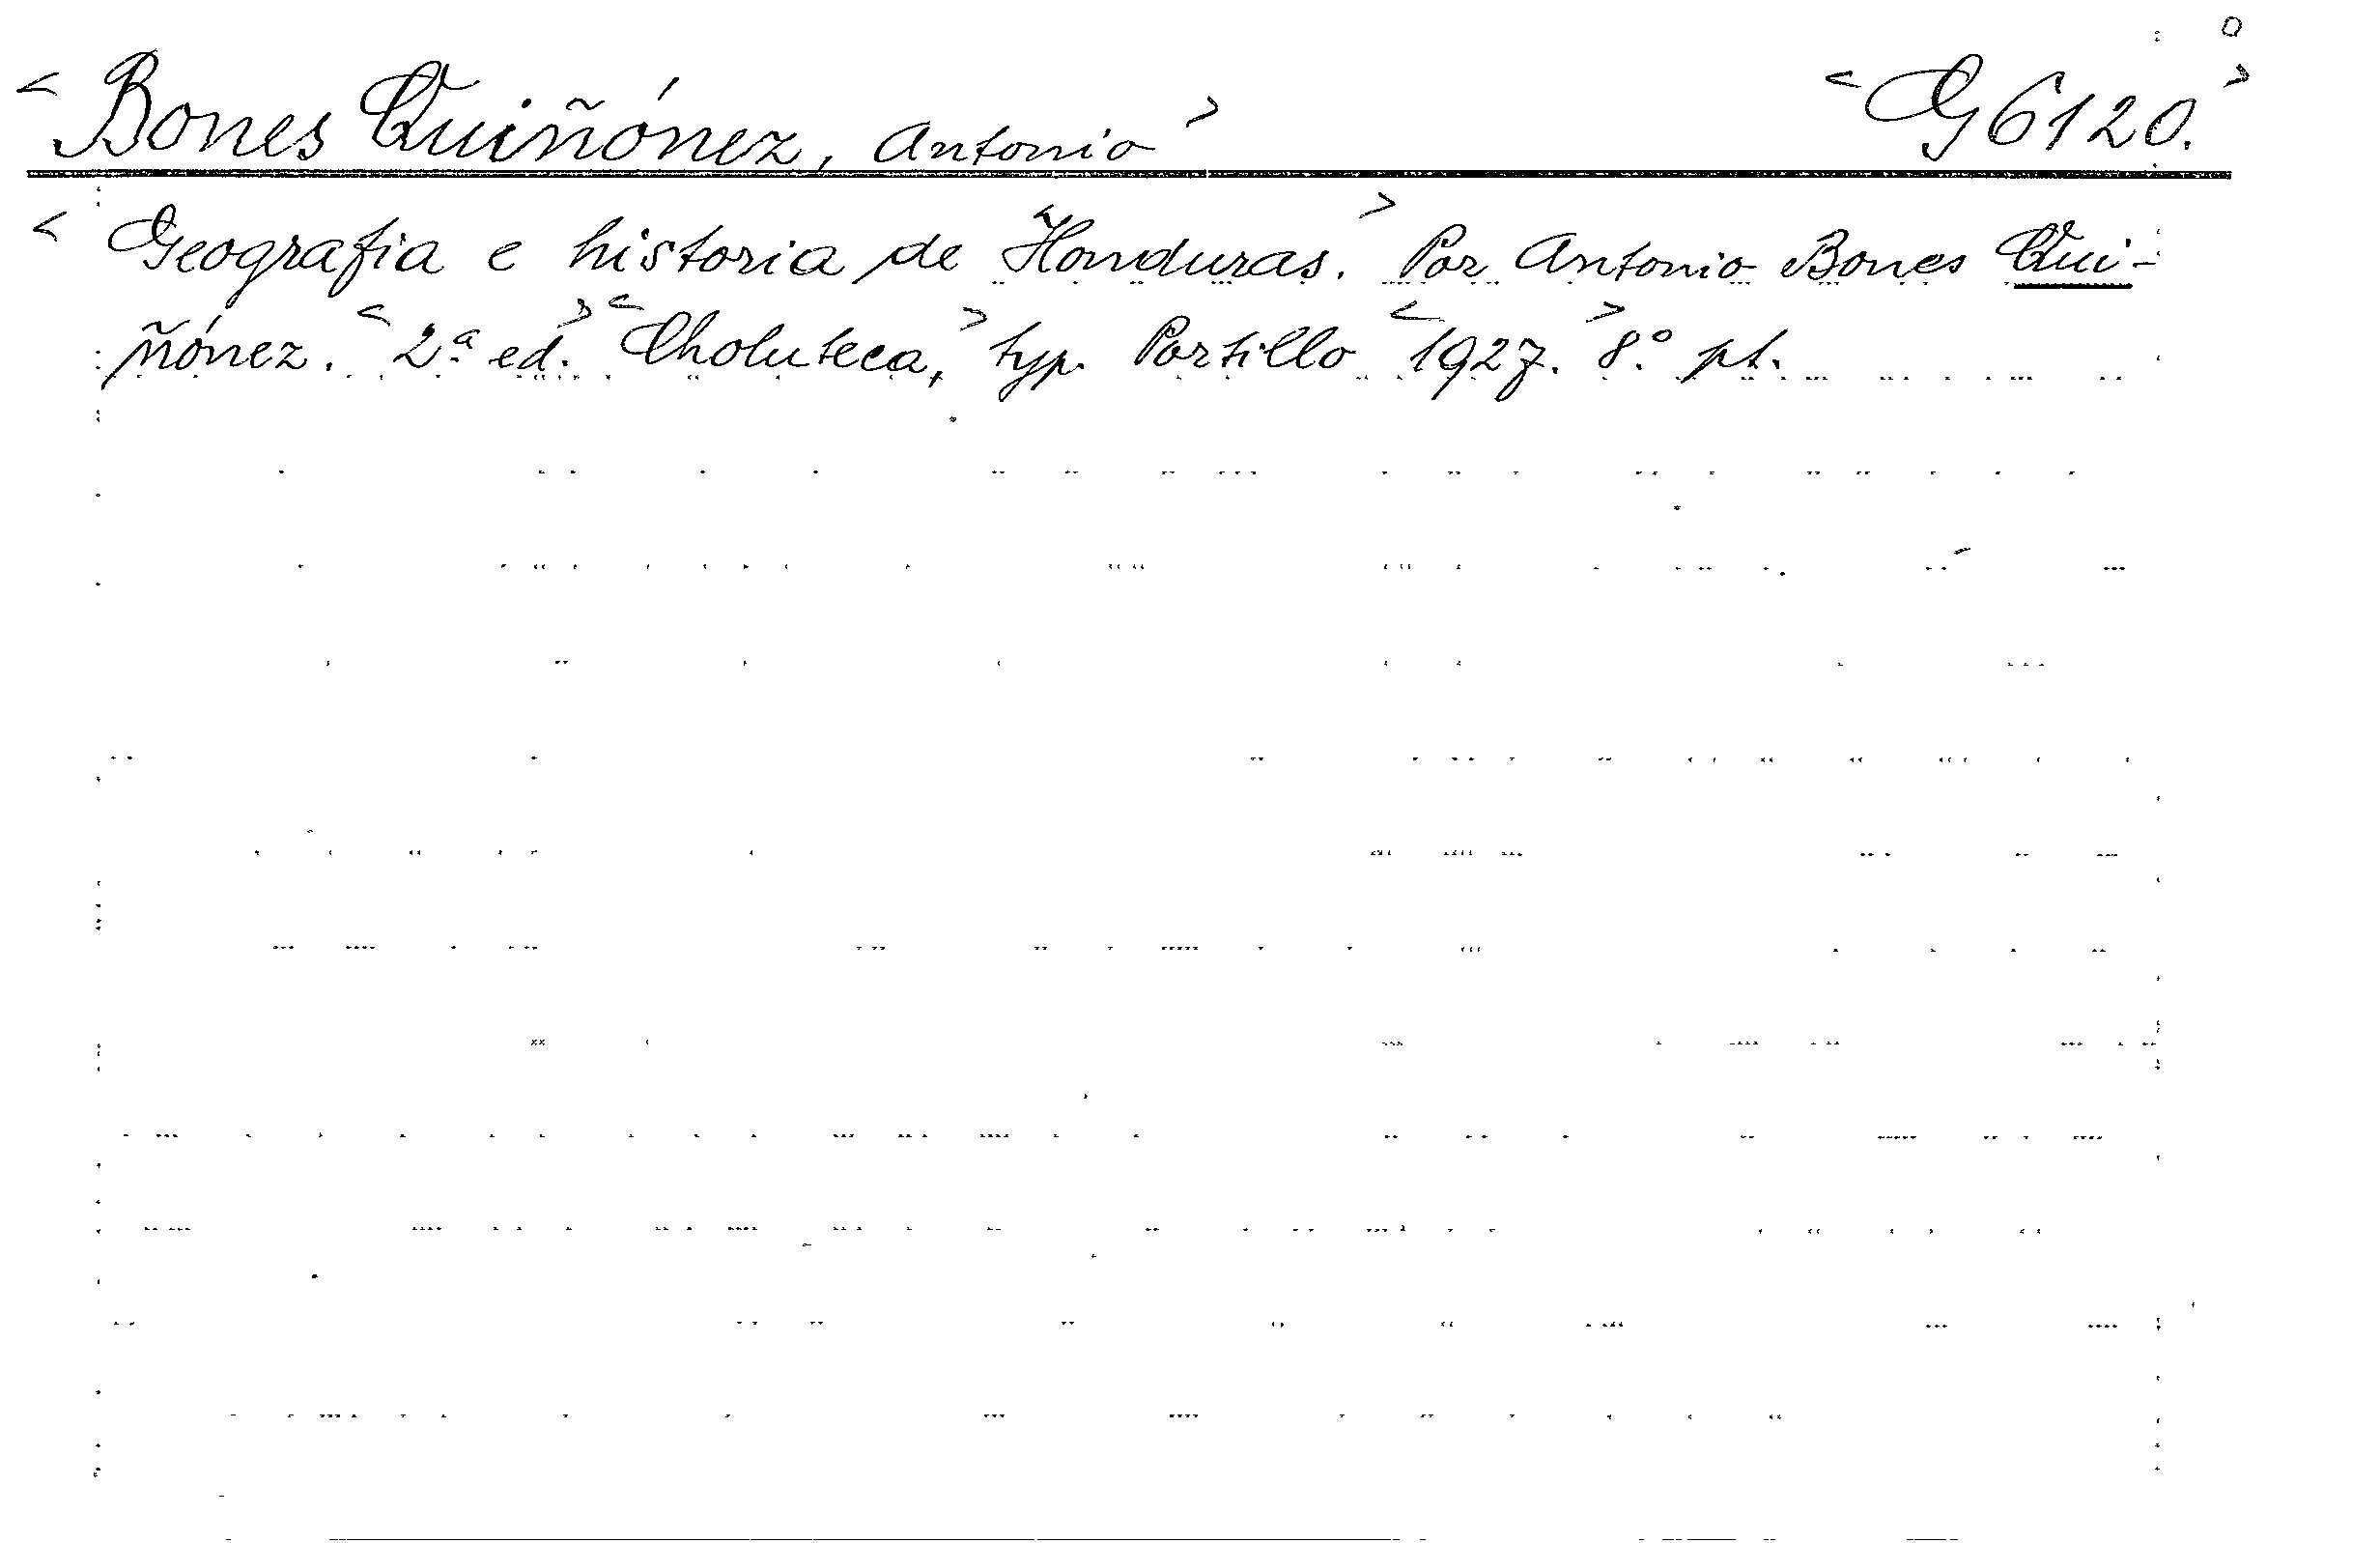 < Bones Quiñónez, Antonio > < G 6120. >
< Geografia e historia de Honduras. > Por Antonio Bones Qui-
ñónez. < 2ª ed. > < Choluteca, > typ. Portillo < 1927. > 8º pt.